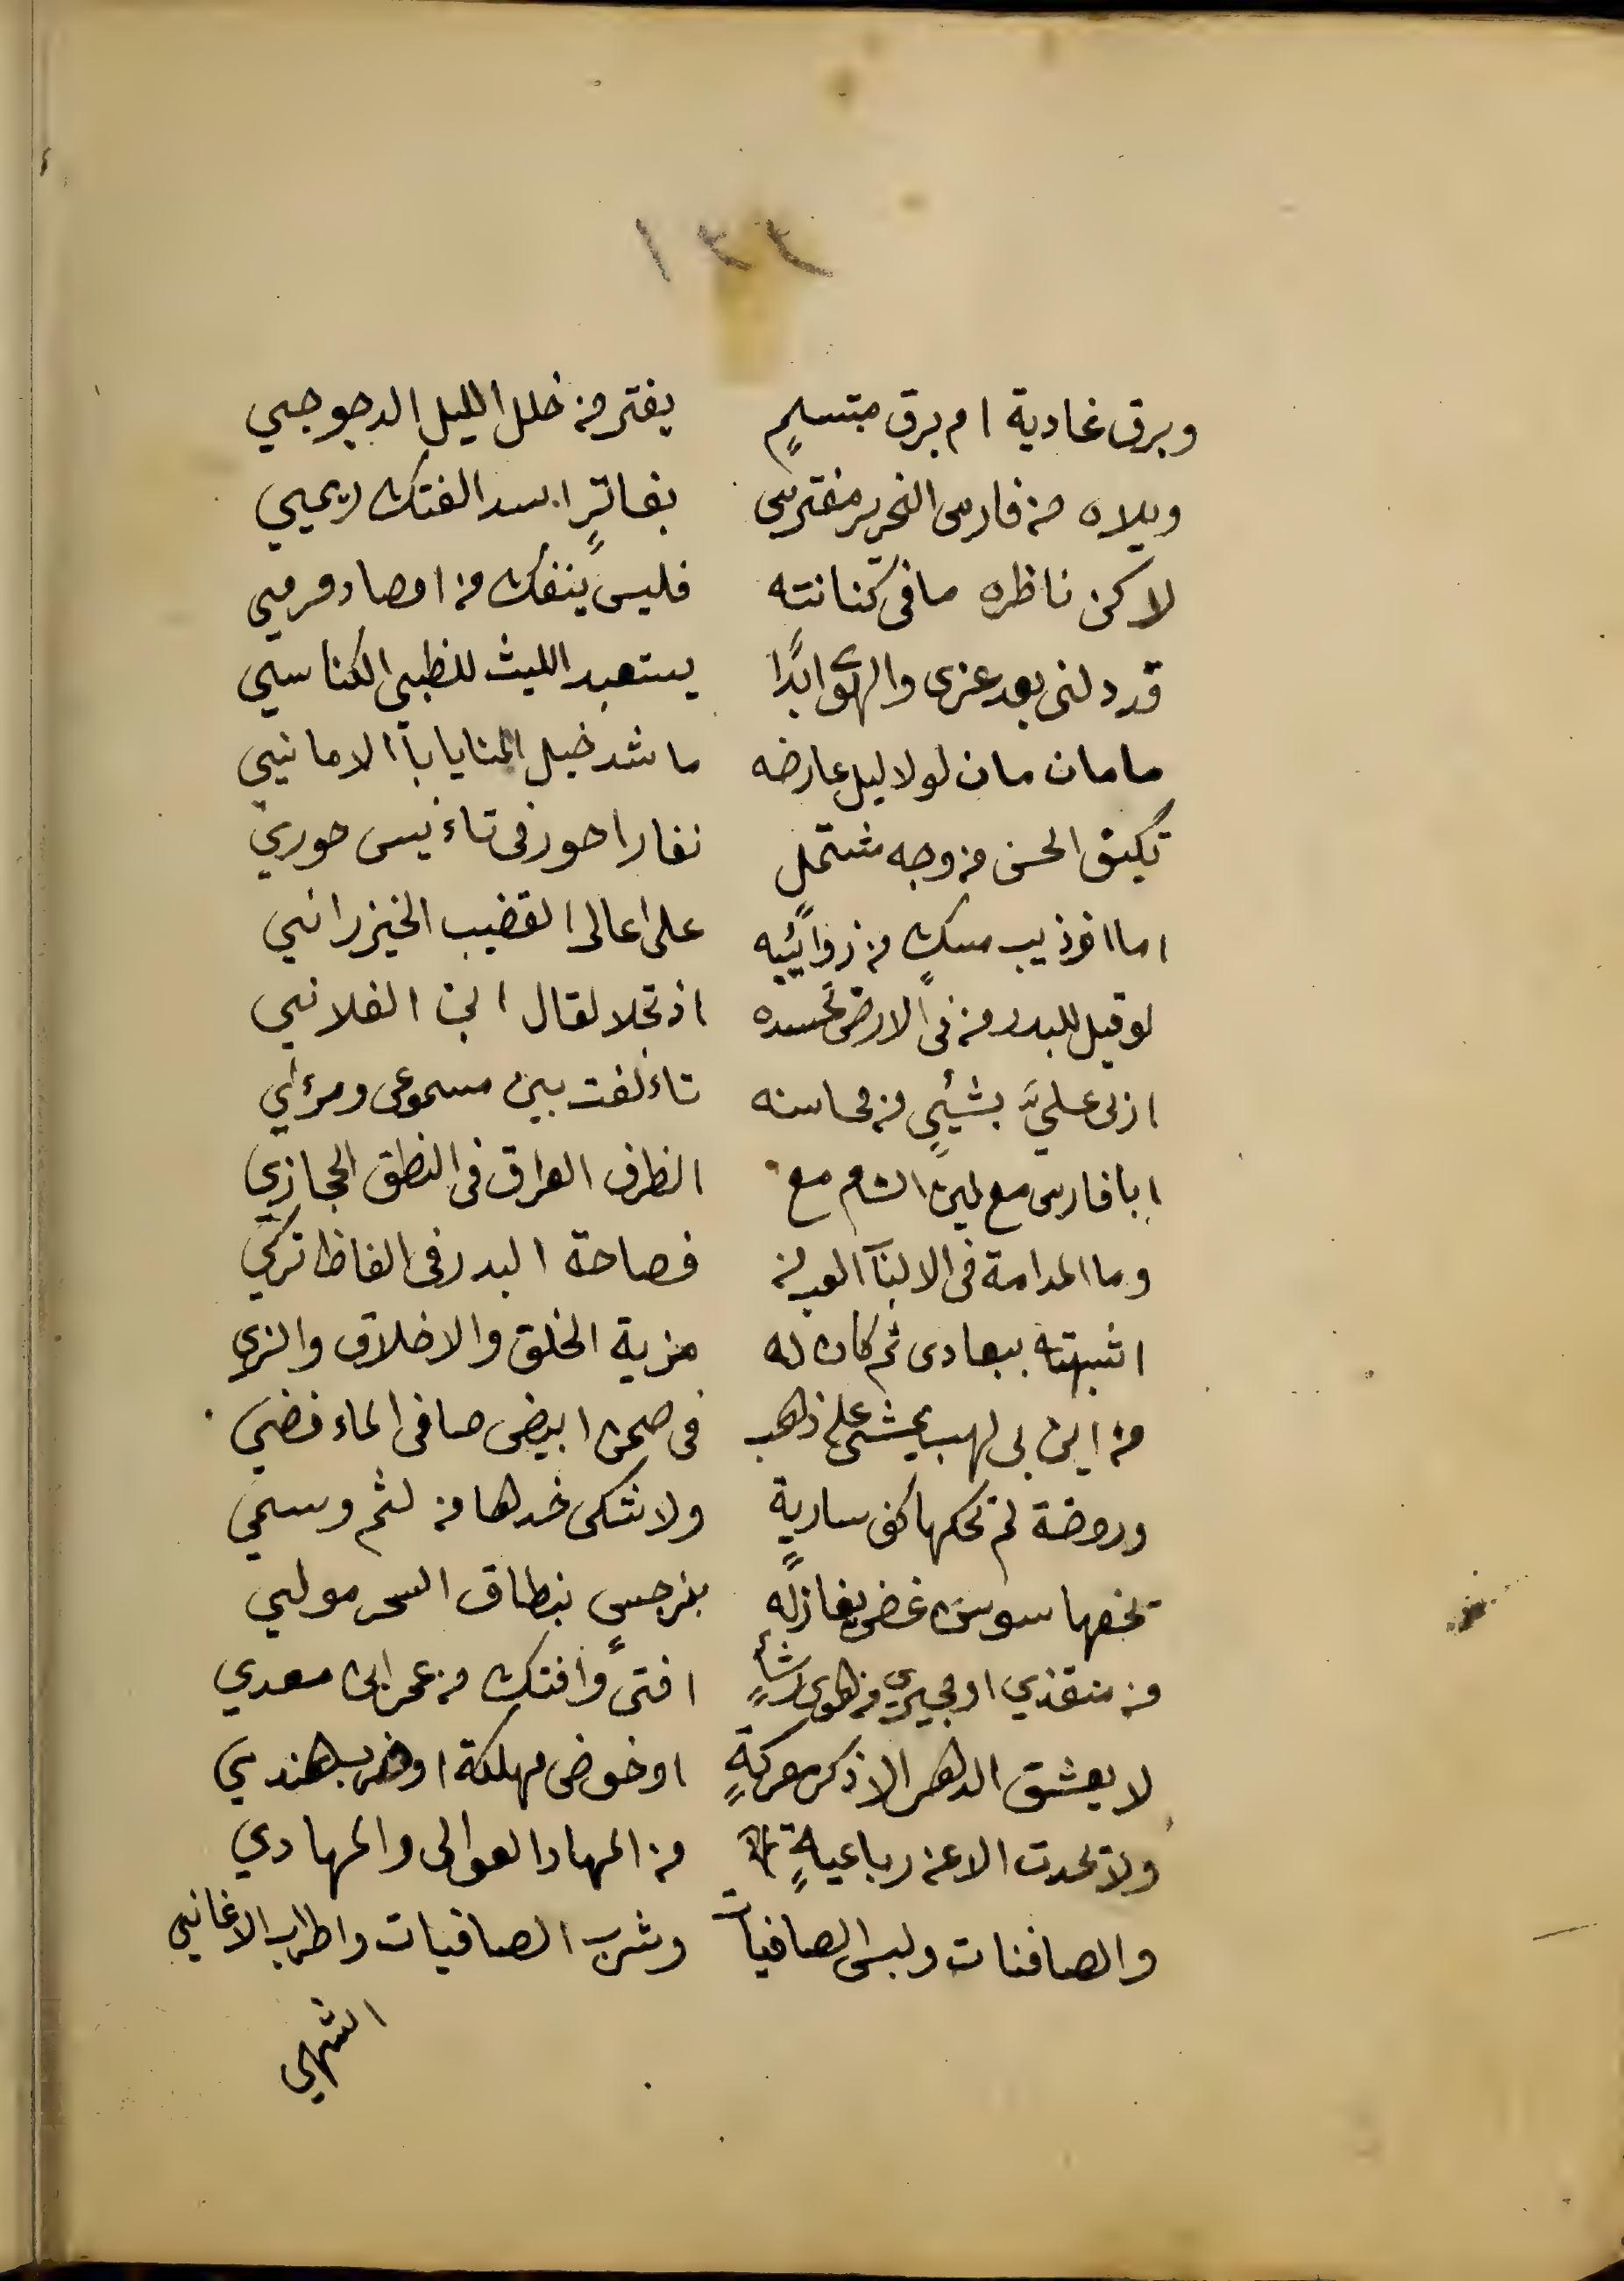 ١٣٣
وبرق غادية ام برق مبتسمٍ يفتر من خلل الليل الدجوجي
ويلاه من فارس النحرير مفترس بفاترٍ اسد الفتك ريمي
لاكن ناظره ما في كنانته فليس ينفك من اصماد مرمي
قد دلنى بعد عزى والهوى ابدًا يستعبد الليث للظبي الكناسي
ما مان مان لولا ليل عارضه ما شد خيل المنايا باالامانيي
تكنف الحسن من وجه مشتمل نفار احور فى تاءنيس حوري
اما وذيب مسكٍ من زوائيبه على اعالى القضيب الخيزرانيي
لو قيل للبدر من فى الارض تحسده اذ تجلا لقال ابن الفلانيي
اربى عليَّ بشئيٍ من محاسنه تاءلفت بين مسموعى ومرءي
ابا فارس مع لين الشام مع الظرف العراق فى النطق الحجازي
وما المدامة فى الالبآ العب من فصاحة البدر فى الفاظ تركي
اشبهته ببعادى ثم كان له مزية الخلق والاخلاق والزي
من اين لى لهب يمشى على ذهب فى صحن ابيض صافى الماء فضي
وروضة لم تحكها كف سارية ولا شتكى خدها من لثم وسمي
تحفها سوسن غض يغازله بنرجسٍ بنطاق السحر مولي
من منقذي او مجيري من هوى رشأٍ افتىً وافتك من عمر ابن معدي
لا يعشق الدهر الا ذكر معركةٍ او خوض مهلكة او ضرب هندي
ولا تحدث الا عن رباعيةٍ من المهاد العوالى والمهادي
والصافنات ولبس الصافيات وشرب الصافيات واطراب الاغانيي
الشهي